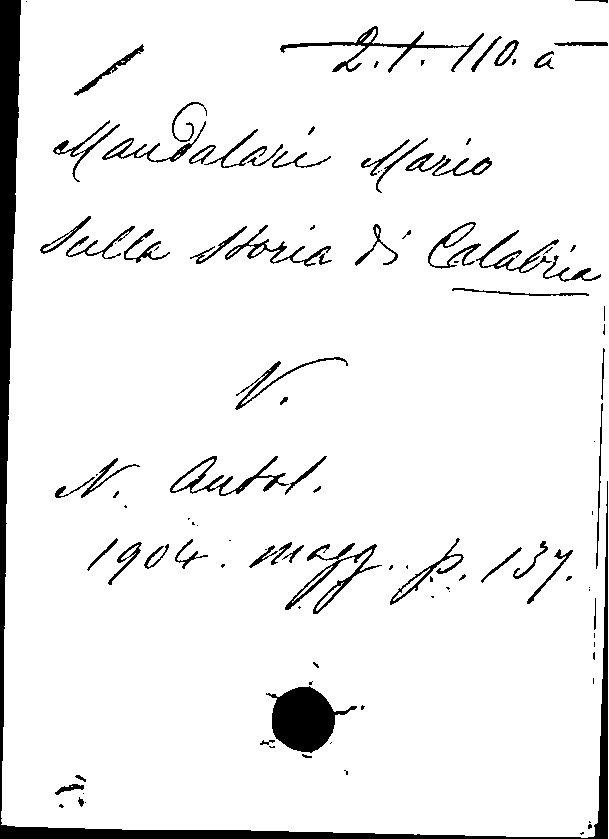 2.1.110.a
Mandalari Mario
Sulla Storia di Calabria
V.
N. Antol.
1904. magg. p. 137.